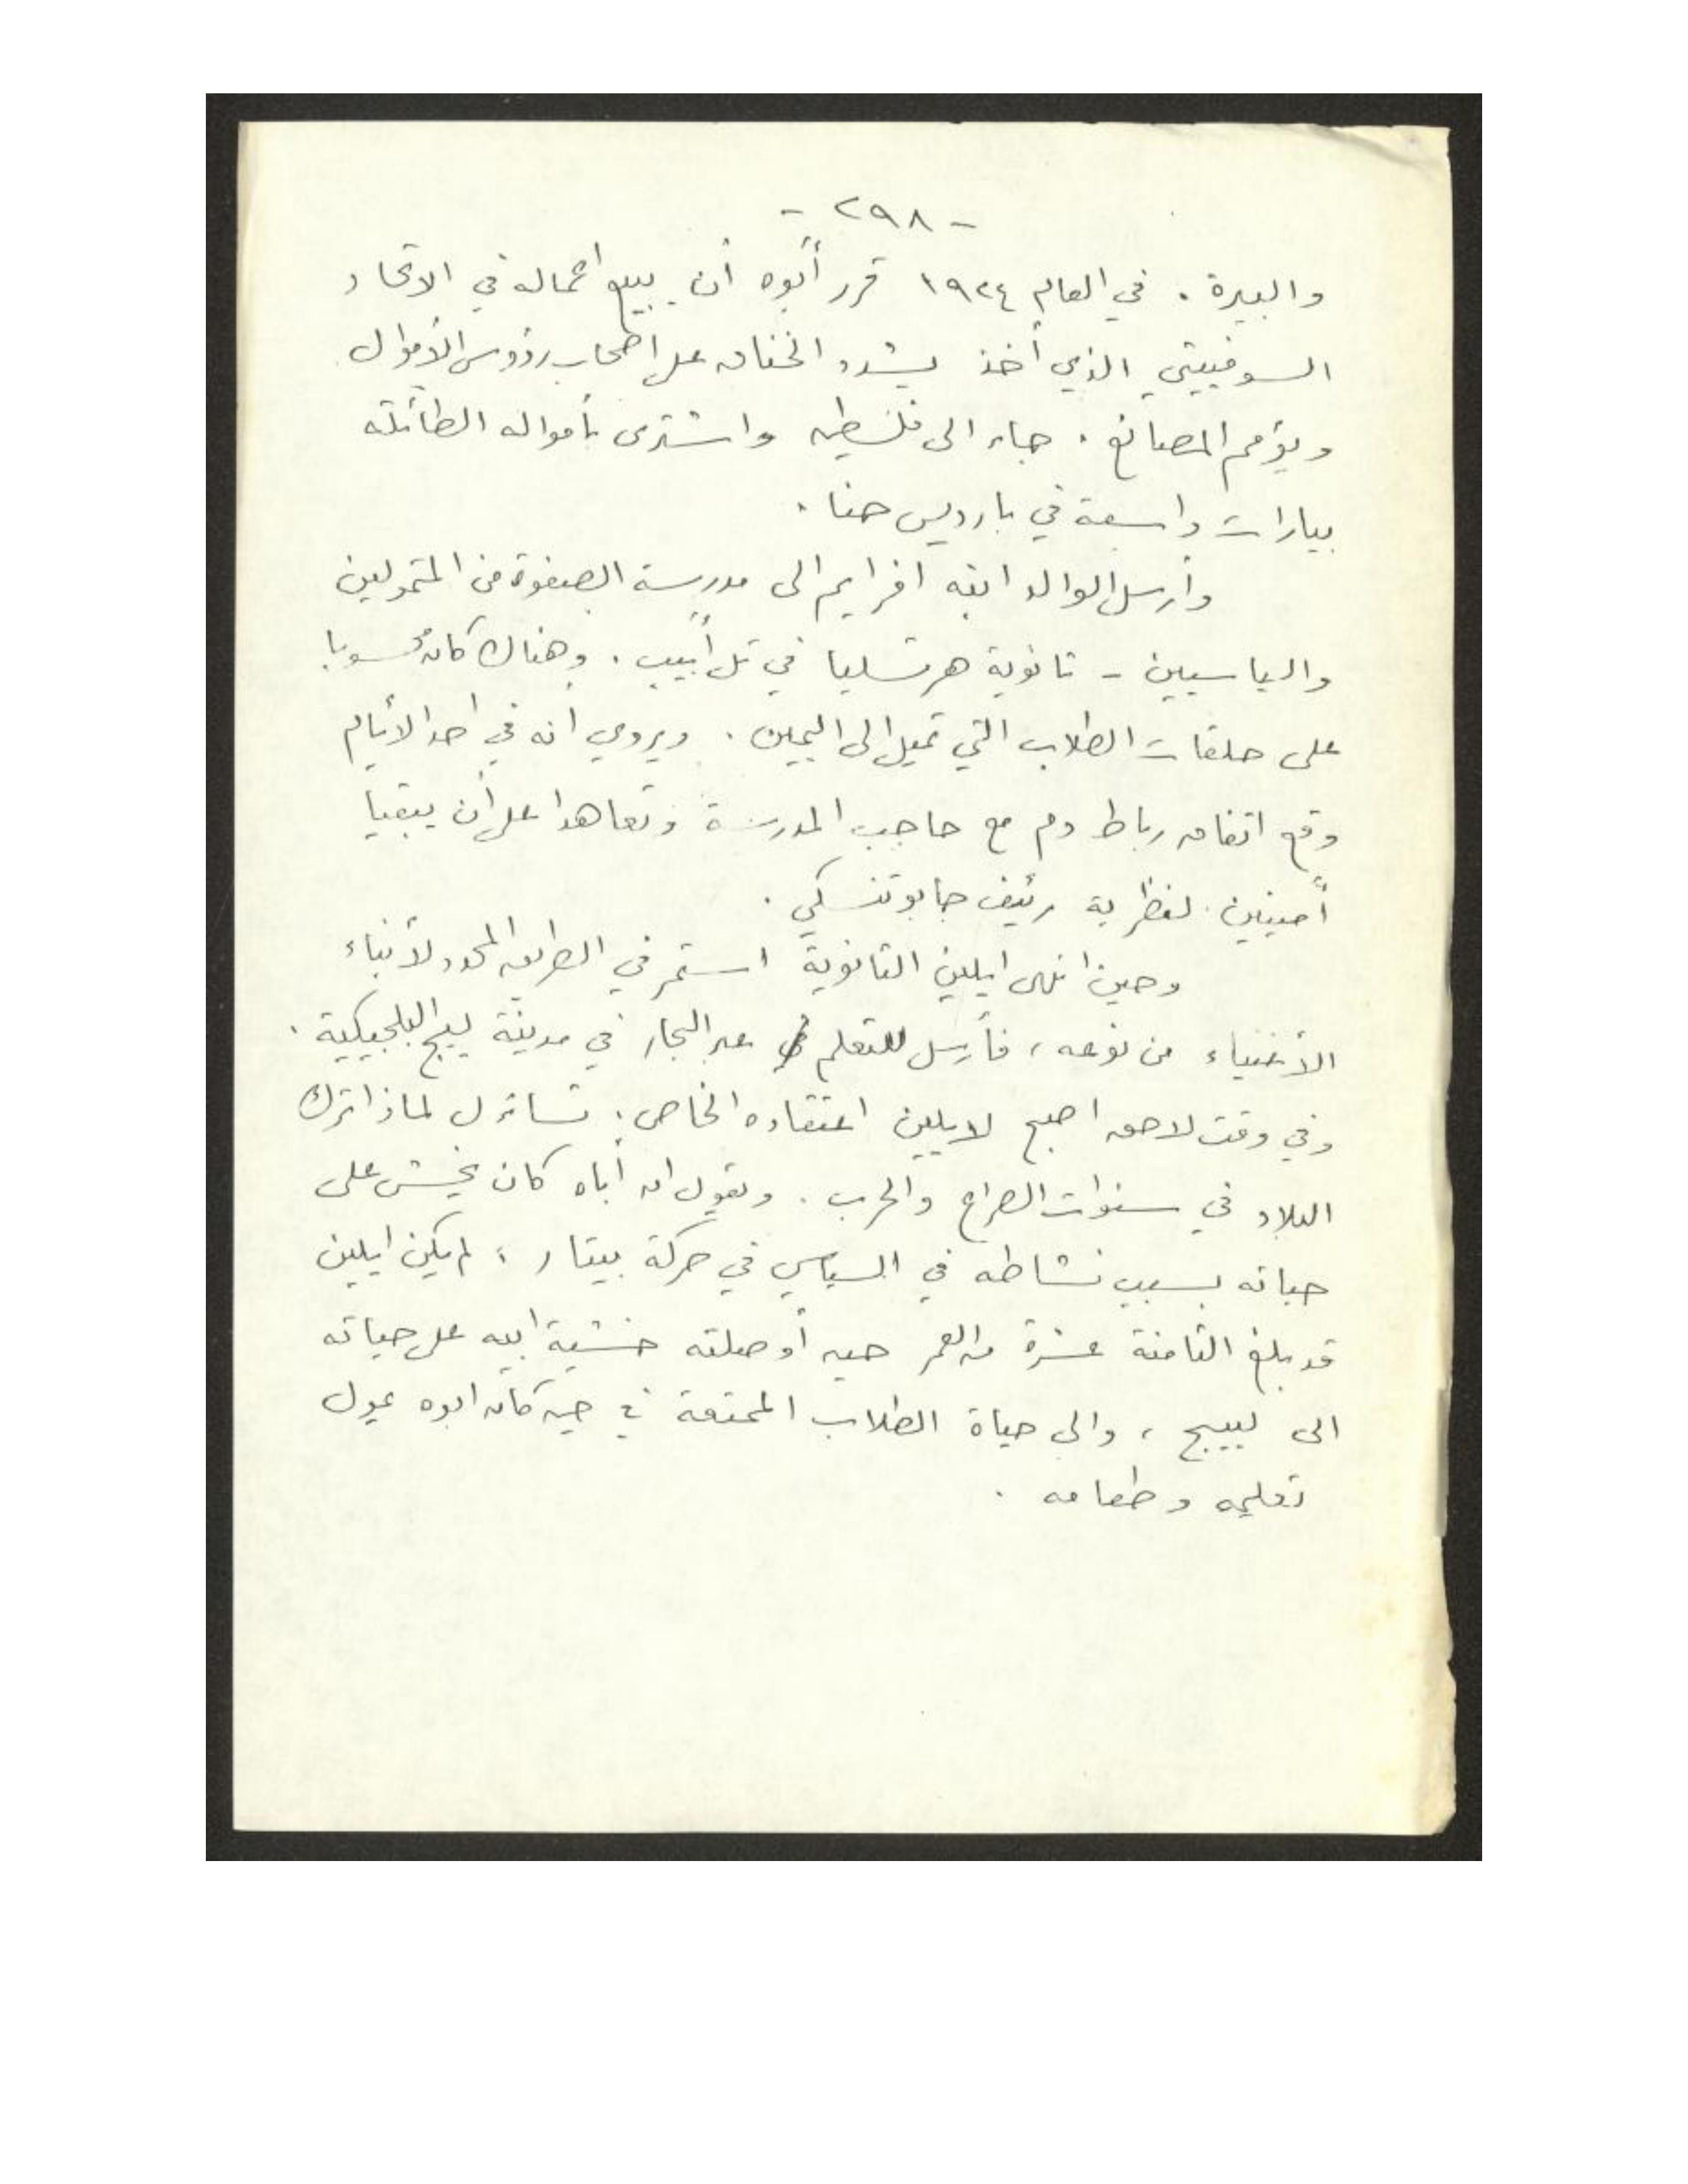 - ٢٩٨ -
والبيرة . في العام ١٩٢٤ قرر أبوه أن يبيع أعماله في الاتحاد
السوفييتي الذي أخذ يشدد الخناق على اصحاب رؤوس الأموال
ويؤمم المصانع . جاء الى فلسطين واشترى بأمواله الطائلة
بيارات واسعة في بارديس حنا .
وأرسل الوالد ابنه افرايم الى مدرسة الصفوة من المتمولين
والسياسيين - ثانوية هرتسليا في تل أبيب . وهناك كان محسوبا
على حلقات الطلاب التي تميل الى اليمين . ويروي أنه في احد الأيام
وقع اتفاق رباط دم مع حاجب المدرسة وتعاهدا على أن يبقيا
أمينين لنظرية زئيف جابوتنسكي .
وحين انهى ايلين الثانوية استمر في الطريق المحدد لأبناء
الأغنياء من نوعه ، فأرسل للتعلم عبر البحار في مدينة لييج البلجيكية .
وفي وقت لاحق اصبح لايلين اعتقاده الخاص . تساءل لماذا ترك
البلاد في سنوات الصراع والحرب . ويقول ان أباه كان يخشى على
حياته بسبب نشاطه في السياسي في حركة بيتار ، لم يكن ايلين
قد بلغ الثامنة عشرة من العمر حين أوصلته خشية ابيه على حياته
الى لييج ، والى حياة الطلاب الممتعة في حين كان ابوه يمول
تعليمه وطعامه .